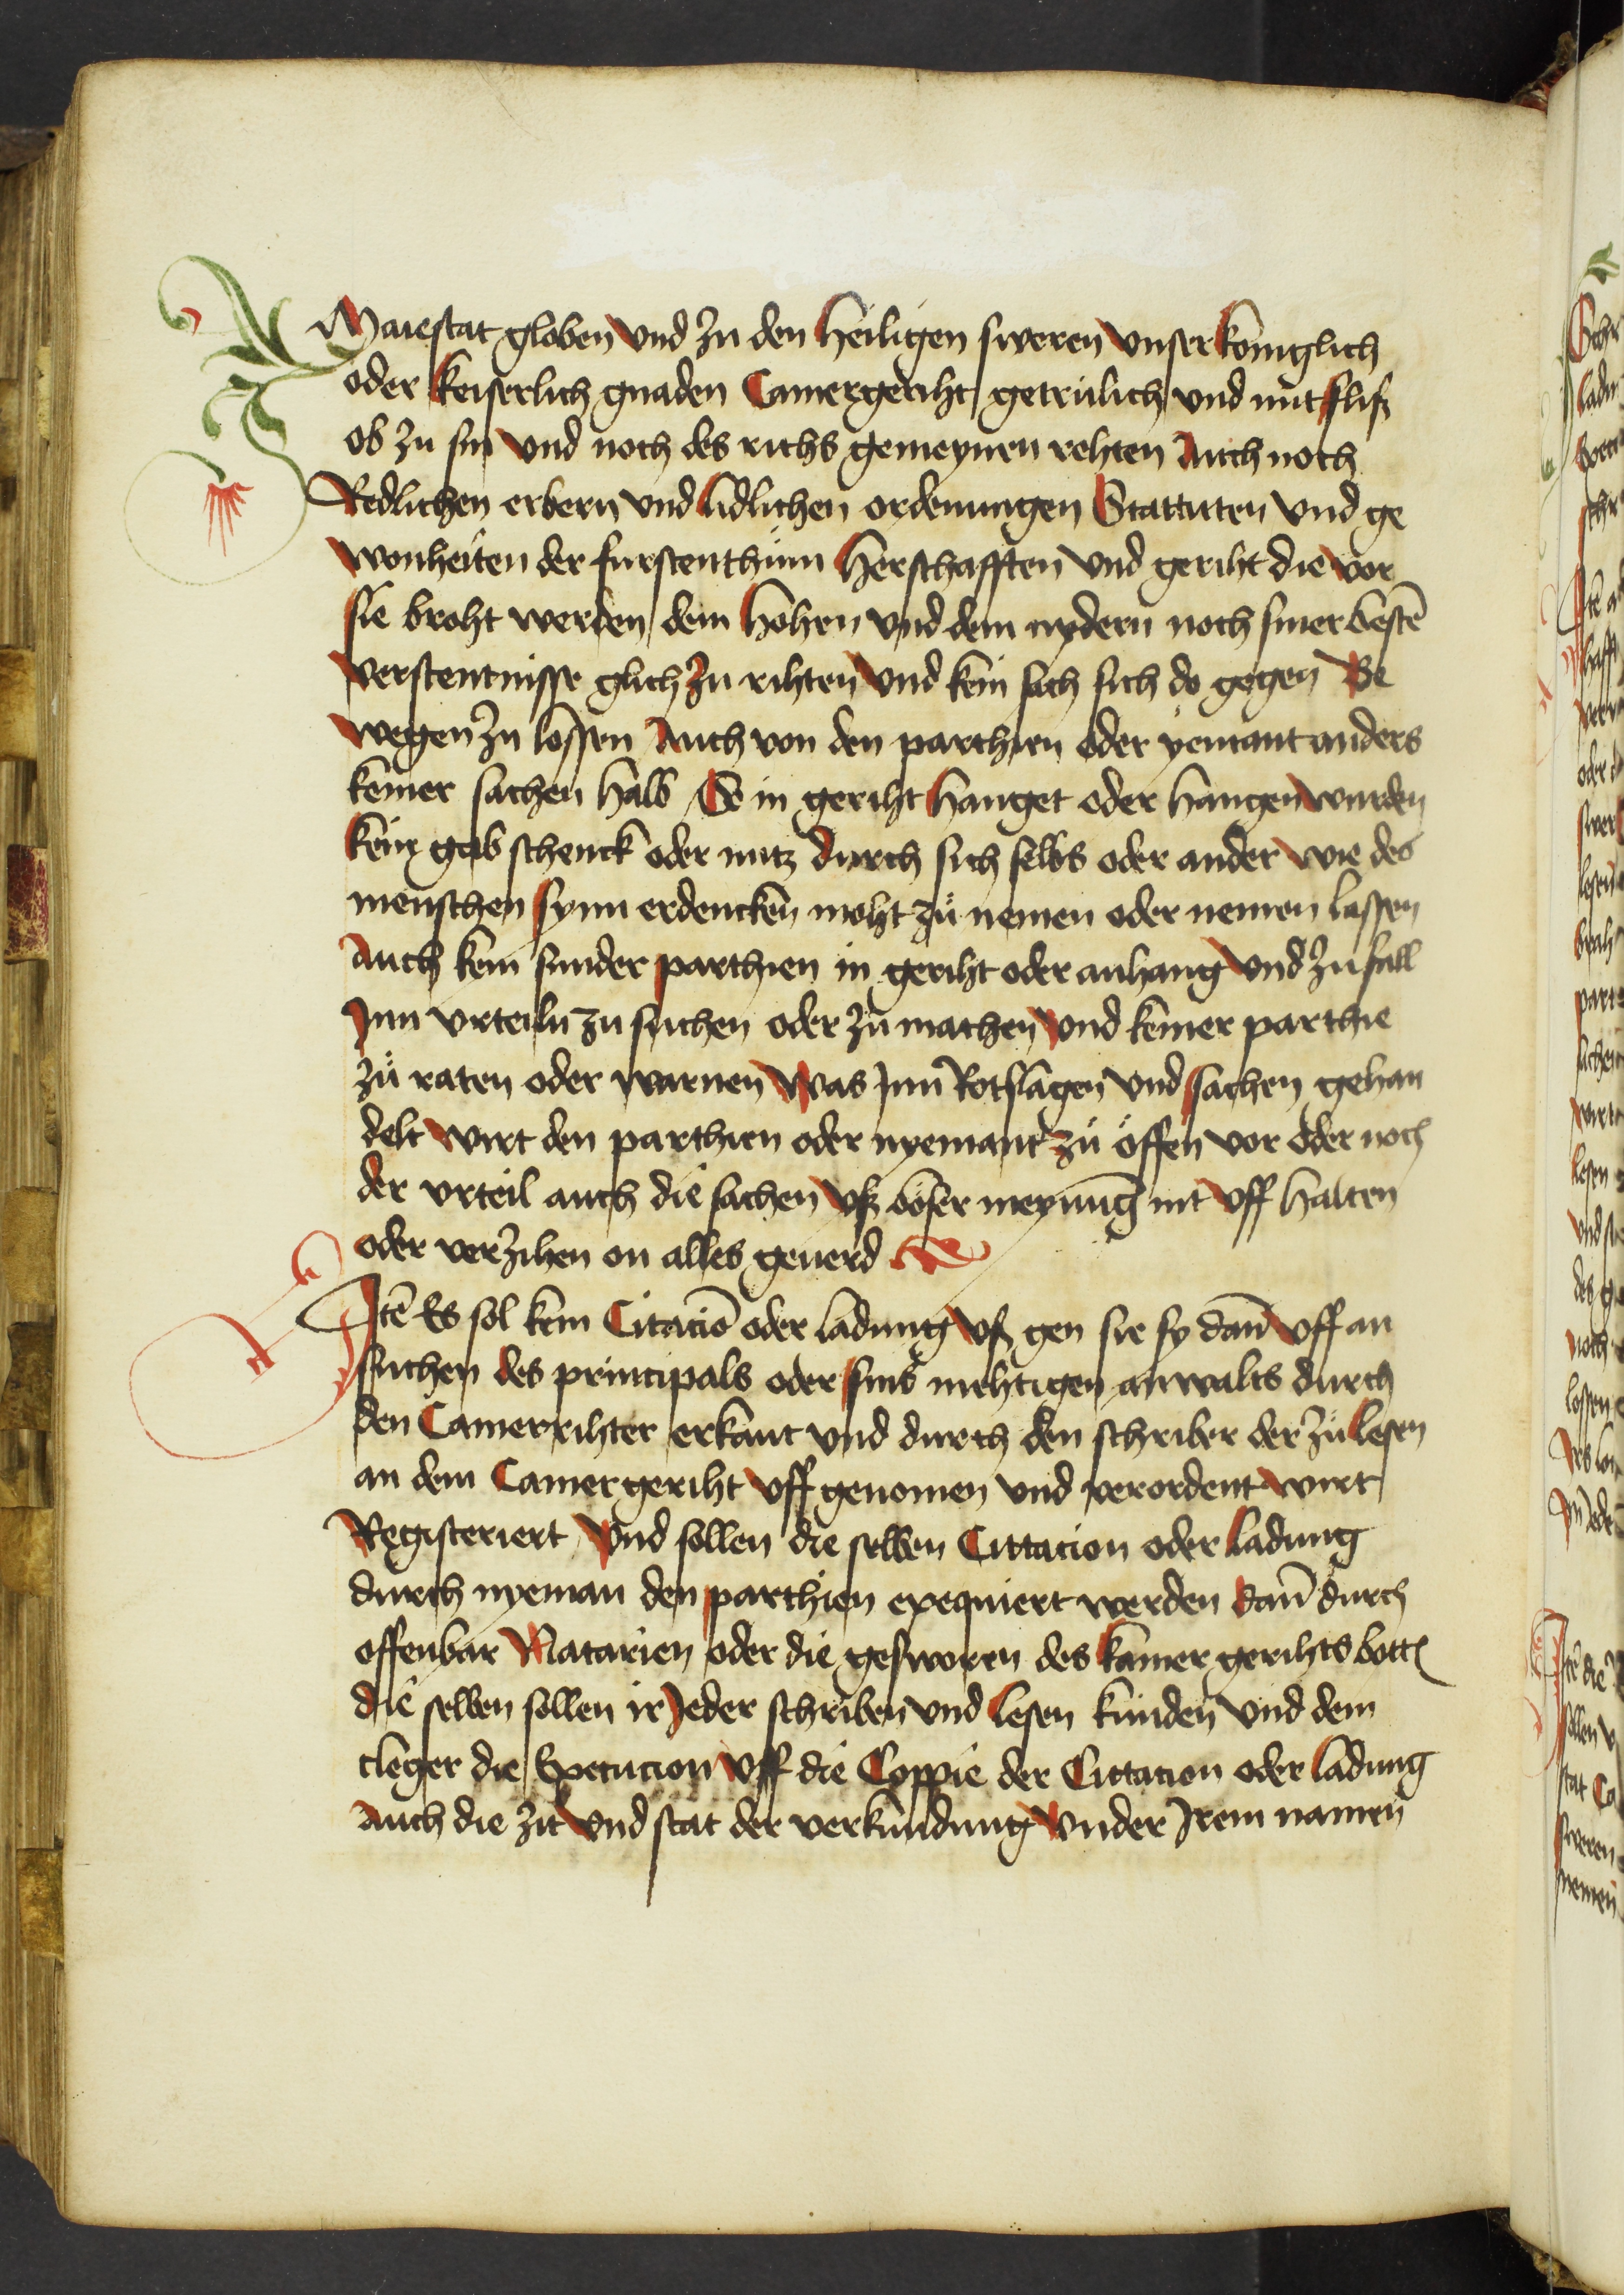 Maiestat globen vnd zu den heiligen sweren vnser koniglich
oder keiserlich gnaden Camergeriht getrulich vnd mit fliß
ob zu sin vnd noch des richs gemeynen rehten Auch noch
Redlichen erbern vnd lidlichen ordenungen Stattuten vnd ge
wonheiten der furstenthum herschafften vnd geriht die vor
sie broht werden dem hohen vnd dem nydern noch siner bestē
verstentnisse glich zu rihten vnd kein sach sich do gegen Be
wegen zu lossen Auch von den parthien oder yemant anders
keiner sachen halb So in geriht hanget oder hangen wurden
kein gab schenck oder nutz durch sich selbs oder ander wie des
menschen synn erdencken moht zů nemen oder nemen lassen
Auch kein sunder parthien in geriht oder anhang vnd zufall
Inn vrteiln zu suchen oder zu machen vnd keiner parthie
zů raten oder warnen Was Inn Rotslagen vnd sachen gehan
delt wirt den parthien oder nyemant zů öffen vor oder noch
der vrteil auch die sachen vß böser meynūg nit vff halten
oder verzihen on alles geuerd
Itē Es sol kein Citaciō oder ladung vß gen sie sy dañ vff an
suchen des principals oder sins mehtigen anwalts durch
den Camerrihter erkant vnd durch den schriber der zů lesen
an dem Camergeriht vff genomen vnd verordent wirt
Registeriert vnd sollen die selben Cittacion oder ladung
durch nyeman den parthien exequiert werden dañ durch
offenbar Natarien oder die gesworen des kamer gerihts bottē
die selben sollen ir Jeder schriben vnd lesen kunden vnd dem
cleger die Execucion vff die Coppie der Cittacion oder ladung
Auch die zit vnd stat der verkundung vnder Irem namen